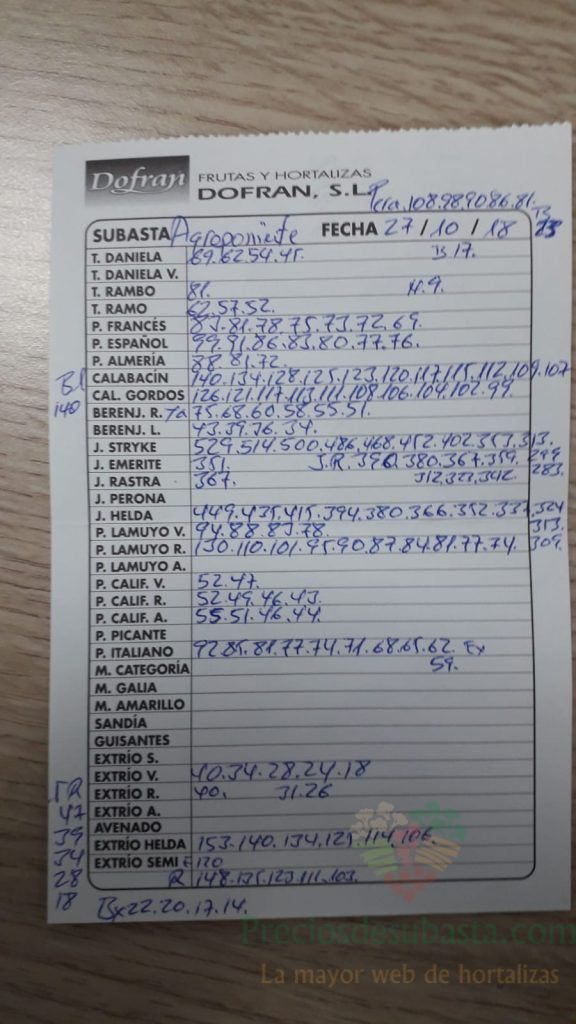 Dofran FRUTAS Y HORTALIZAS
DOFRAN, S.L.
cra.108.98.90.86.81.
SUBASTA Agroponiente FECHA 27/10/18 23
T. DANIELA 69.62.54.45. B 17.
T. DANIELA V.
T. RAMBO 81. H.9.
T. RAMO 62.57.52.
P. FRANCÉS 83.81.78.75.73.72.69.
P. ESPAÑOL 99.91.86.83.80.77.76.
P. ALMERÍA 88.81.72.
Bl CALABACÍN 140.134.128.125.123.120.117.115.112.109.107
140 CAL. GORDOS 126.121.117.113.111.108.106.104.102.99.
BERENJ. R. Ya 75.68.60.58.55.51.
BERENJ. L. 43.39.76.34.
J. STRYKE 529.514.500.486.468.452.402.353.313.
J. EMERITE 351. J.R. 390.380.367.359. 299
J. RASTRA 367. 312.323.342. 283.
J. PERONA
J. HELDA 449.435.415.394.380.366.352.337.324
P. LAMUYO V. 94.88.83.78. 313.
P. LAMUYO R. 130.110.101.95.90.87.84.81.77.74. 309.
P. LAMUYO A.
P. CALIF. V. 52.47.
P. CALIF. R. 52.49.46.43.
P. CALIF. A. 55.51.46.44.
P. PICANTE
P. ITALIANO 92.85.81.77.74.71.68.65.62. Ex
M. CATEGORÍA 59.
M. GALIA
M. AMARILLO
SANDÍA
GUISANTES
EXTRÍO S.
EXTRÍO V. 40.34.28.24.18
EXTRÍO R. 40. 31.26
47 EXTRÍO A.
39 AVENADO
34 EXTRÍO HELDA 153.140.134.125.114.106.
28 EXTRÍO SEMI E 120
R 148.135.123.111.103.
18 Bx22.20.17.14.
Preciosdesubasta.com
La mayor web de hortalizas